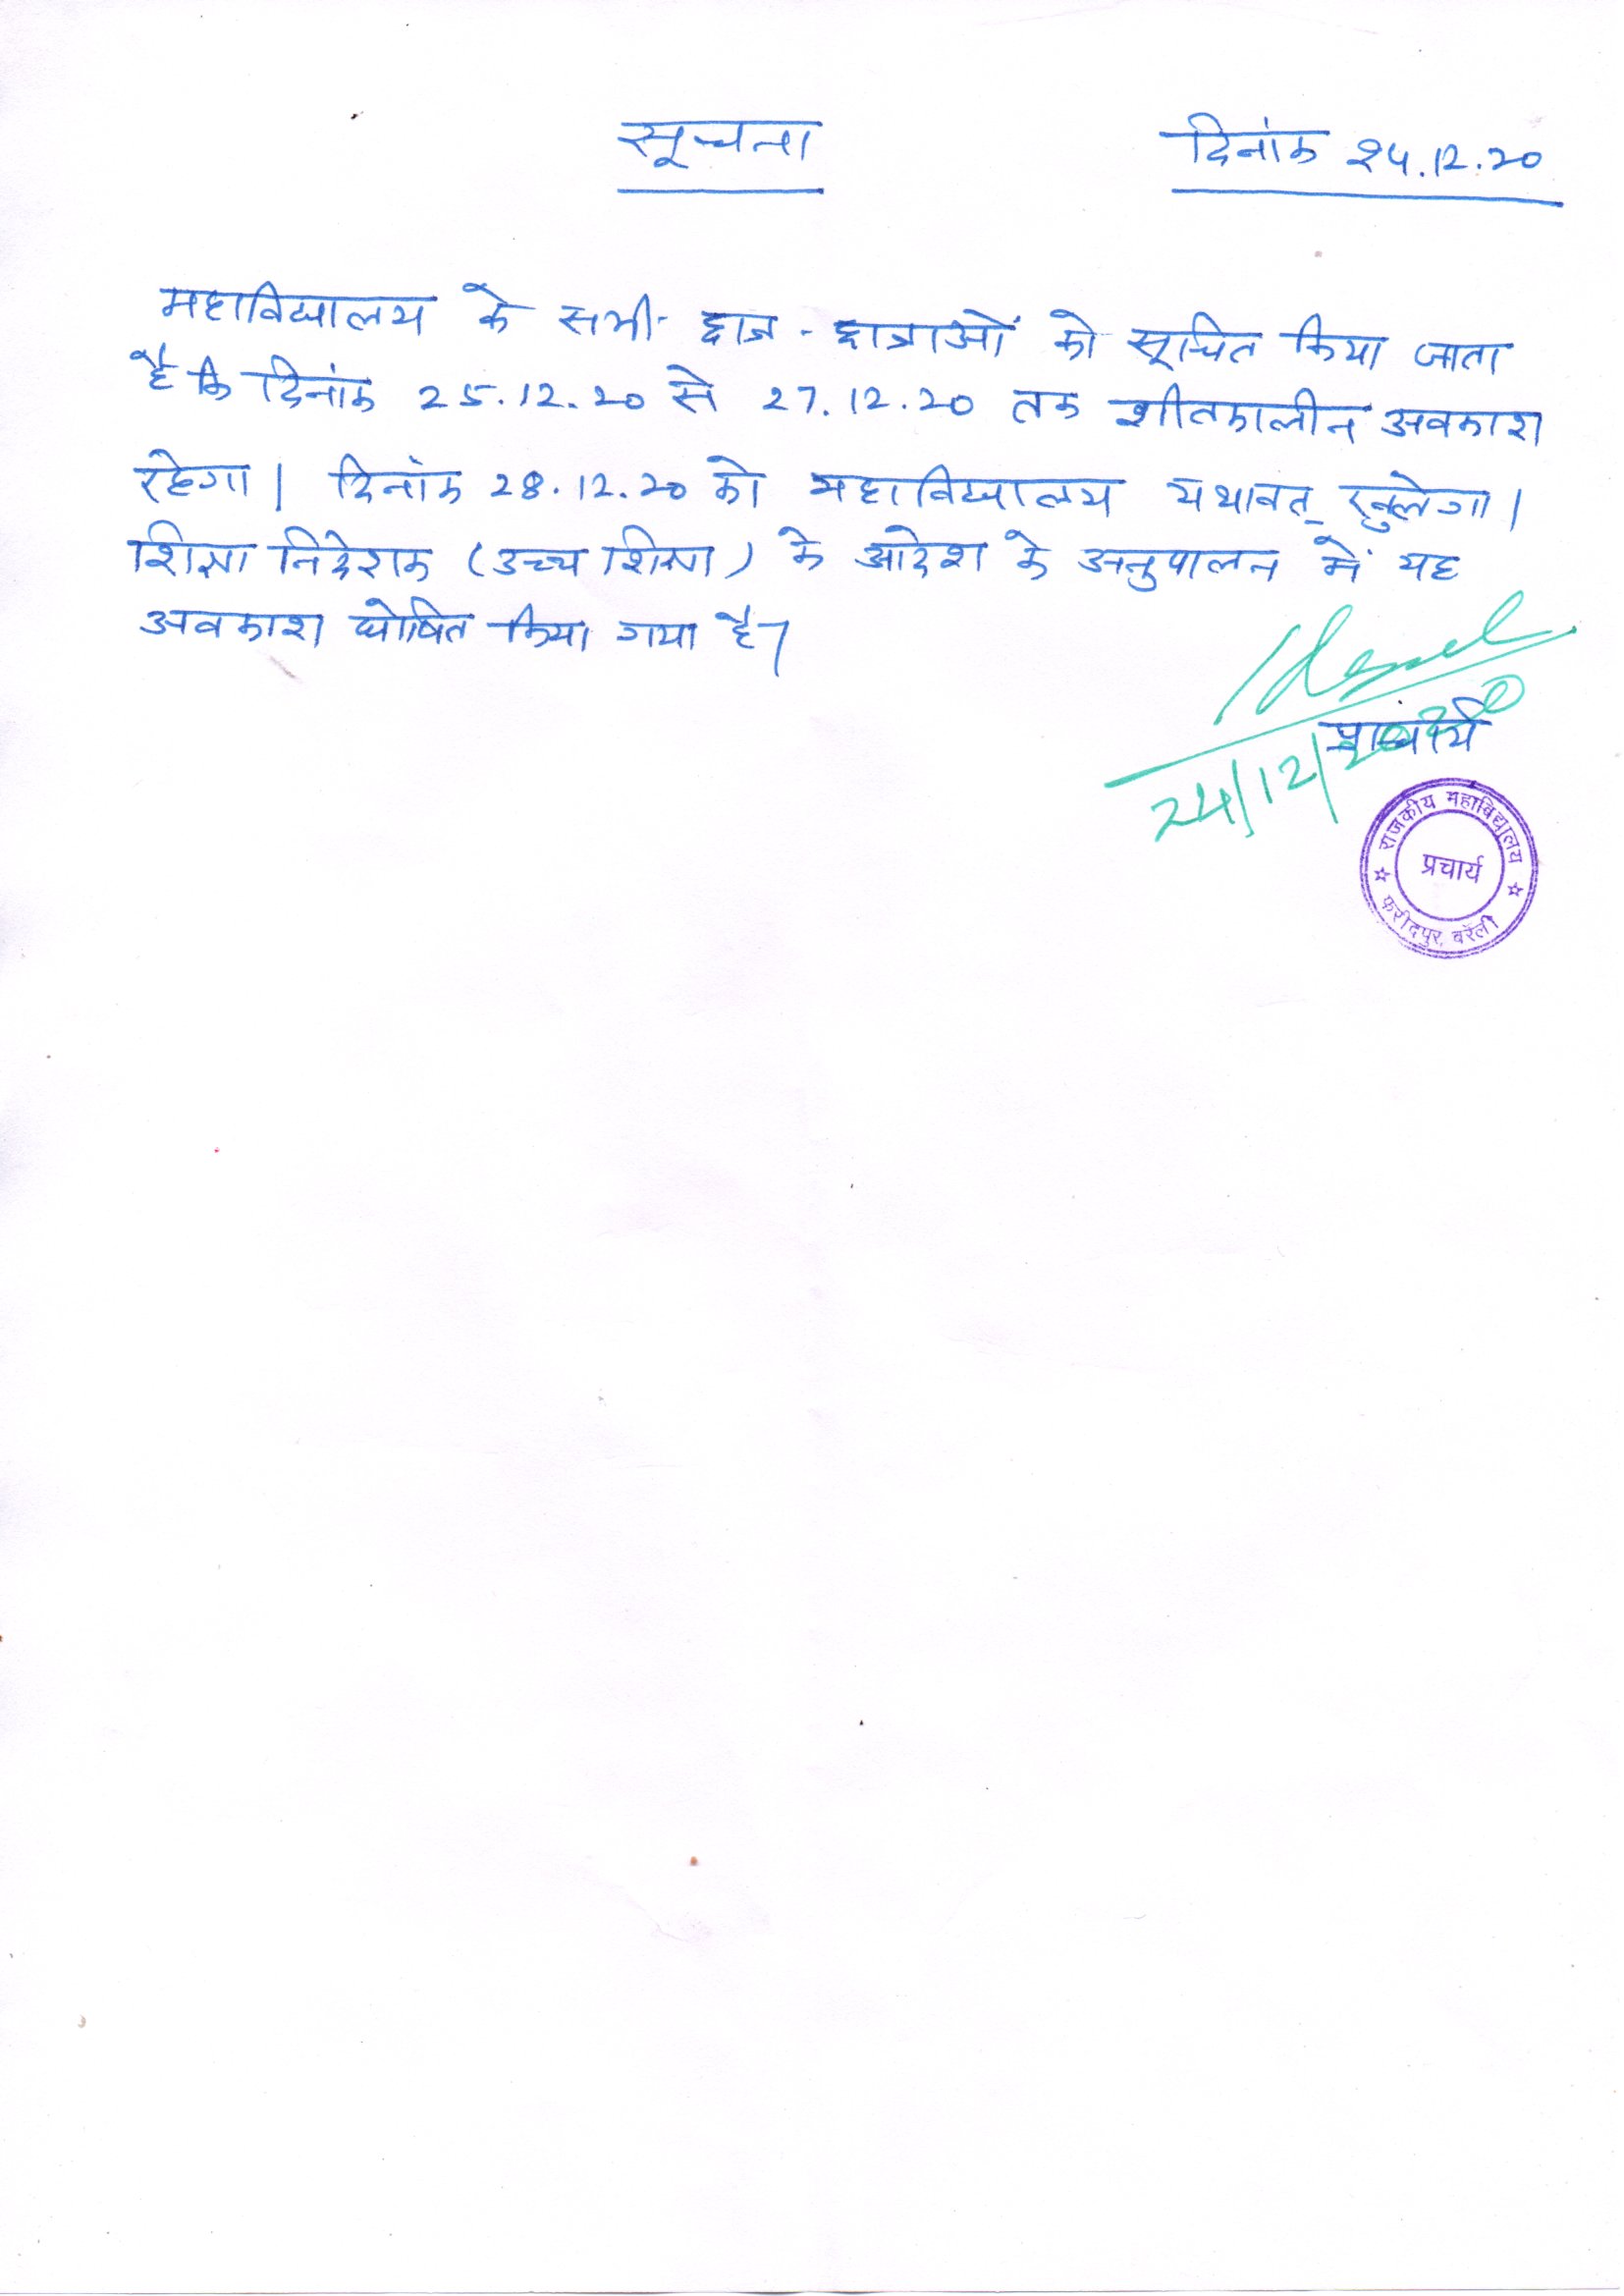 सूचना
दिनांक 24.12.20
महाविद्यालय के सभी छात्र - छात्राओं को सूचित किया जाता
है कि दिनांक 25.12.20 से 27.12.20 तक शीतकालीन अवकाश
रहेगा। दिनांक 28.12.20 को महाविद्यालय यथावत् खुलेगा।
शिक्षा निदेशक (उच्च शिक्षा) के आदेश के अनुपालन में यह
अवकाश घोषित किया गया है।
प्राचार्य
24/12/2020
राजकीय महाविद्यालय
प्रचार्य
फरीदपुर, बरेली